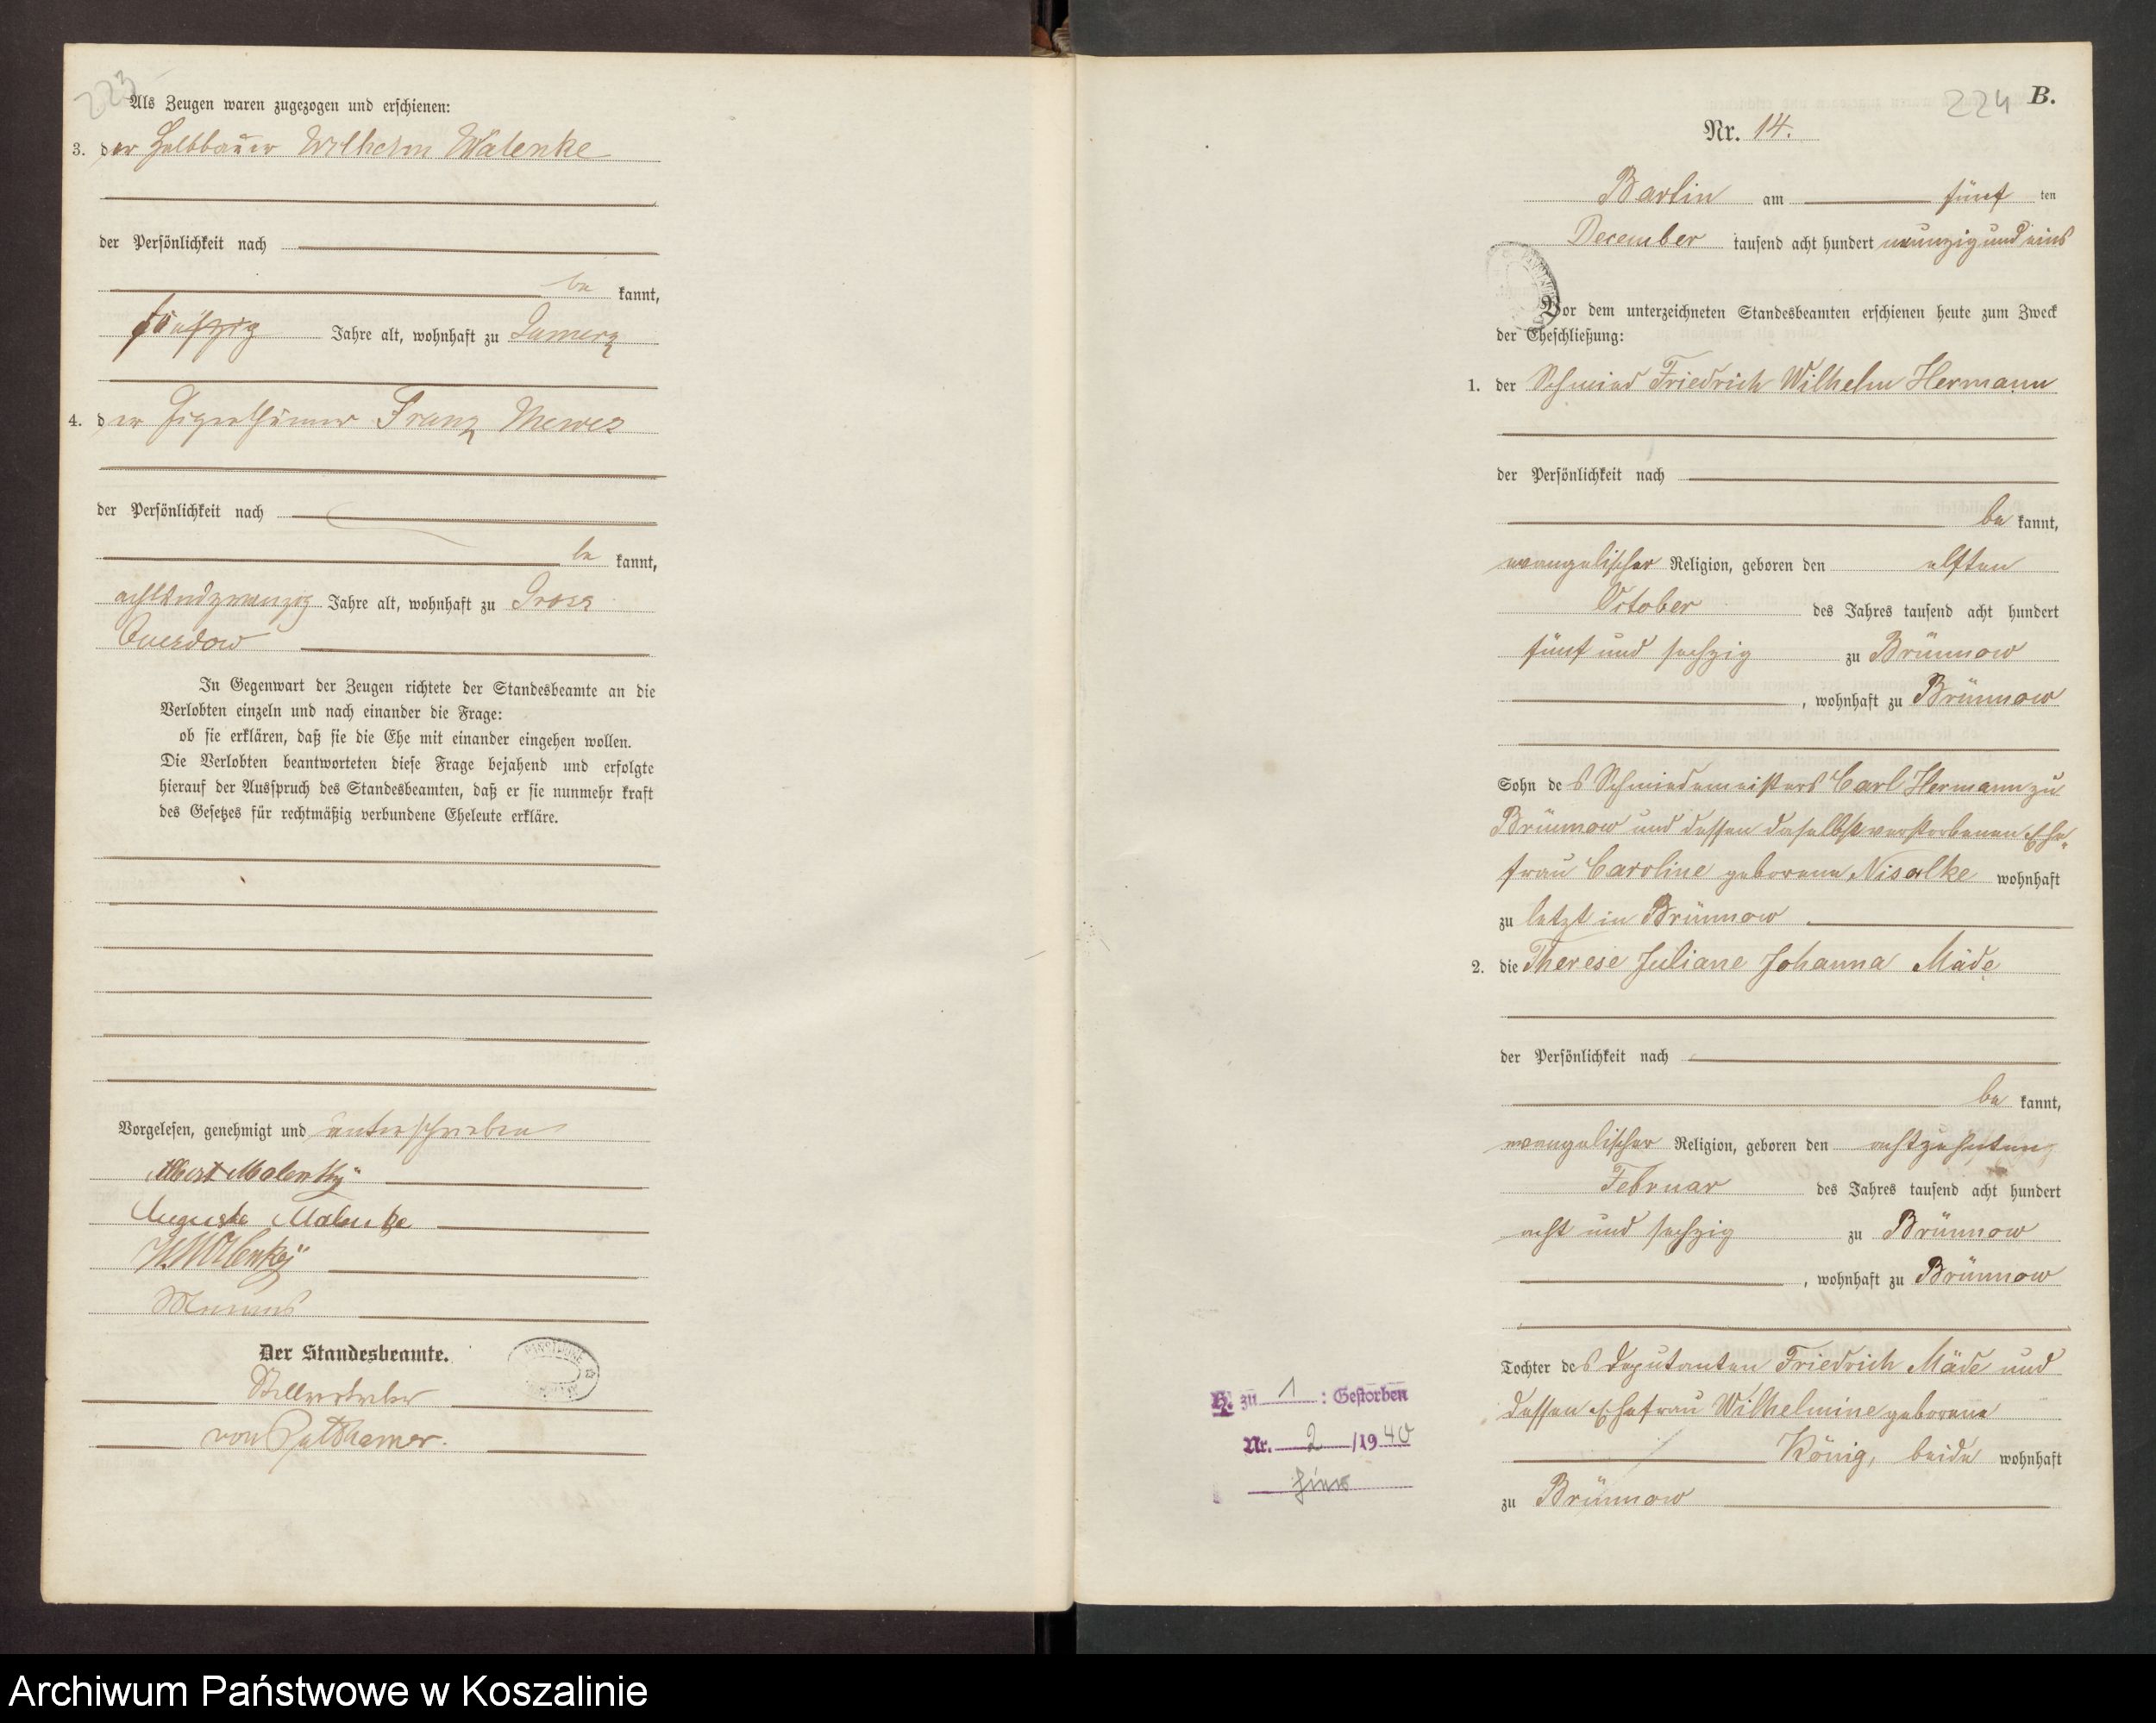 223
Als Zeugen waren zugezogen und erschienen:
3. der Halbbauer Wilhelm Malenke
der Persönlichkeit nach
be kannt,
fünfzig Jahre alt, wohnhaft zu
4. der Eigenthümer Franz Mewes
der Persönlichkeit nach
be kannt,
achtundzwanzig Jahre alt, wohnhaft zu Gross
Quesdow
In Gegenwart der Zeugen richtete der Standesbeamte an die
Verlobten einzeln und nach einander die Frage:
ob sie erklären, daß sie die Ehe mit einander eingehen wollen.
Die Verlobten beantworteten diese Frage bejahend und erfolgte
hierauf der Ausspruch des Standesbeamten, daß er sie nunmehr kraft
des Gesetzes für rechtmäßig verbundene Eheleute erkläre.
Vorgelesen, genehmigt und unterschrieben
Albert Malenky
Auguste Malenke
Der Standesbeamte.
Stellvertreter
von Puttkamer.
224 B.
Nr. 14.
Bartin am fünf ten
December tausend acht hundert neunzig und eins
Vor dem unterzeichneten Standesbeamten erschienen heute zum Zweck
der Eheschließung:
1. der Schmied Friedrich Wilhelm Hermann
der Persönlichkeit nach
be kannt,
evangelischer Religion, geboren den elften
October des Jahres tausend acht hundert
fünf und sechzig zu Brünnow
, wohnhaft zu Brünnow
Sohn des Schmiedemeisters Carl Hermann zu
Brünnow und dessen daselbst verstorbenen Ehe-
frau Caroline geborene wohnhaft
zu letzt in Brünnow
2. die Therese Juliane Johanna Mäde
der Persönlichkeit nach
be kannt,
evangelischer Religion, geboren den achtzehnten
Februar des Jahres tausend acht hundert
acht und sechzig zu Brünnow
, wohnhaft zu Brünnow
Tochter des Deputanten Friedrich Mäde und
dessen Ehefrau Wilhelmine geborene
König, beide wohnhaft
zu Brünnow
H. zu 1 : Gestorben
Nr. 2 /1940
hier
Archiwum Państwowe w Koszalinie